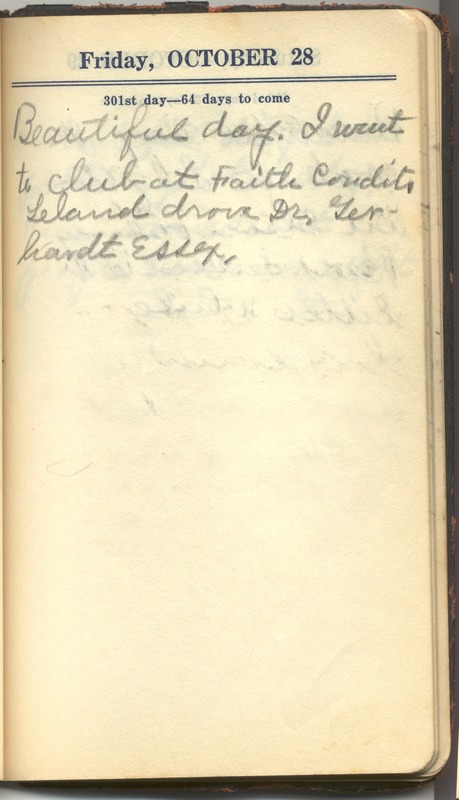 Friday, OCTOBER 28
301st day—64 days to come
Beautiful day. I went
to club at Faith Condits
Leland drove Dr. Ger-
hardt Essex.